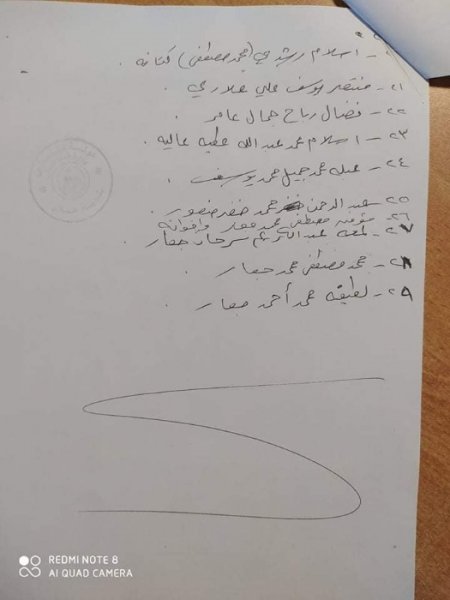 اسلام رشدي (محمد مصطفى) كنانه.
٢١- منتصر يوسف علي
٢٢- نضال رباح جمال عامر.
٢٣- اسلام محمد عبد الله عطيه عاليه.
٢٤- محمد جميل محمد يوسف.
٢٥- عبد الرحمن محمد خضر منصور.
٢٦- مؤمنه مصطفى محمد حفار واخوانه
٢٧- عبد الكريم سرحان حفار
٢٨- محمد مصطفى محمد حفار.
٢٩- لطيفه محمد أحمد حفار.
REDMI NOTE 8
AI QUAD CAMERA